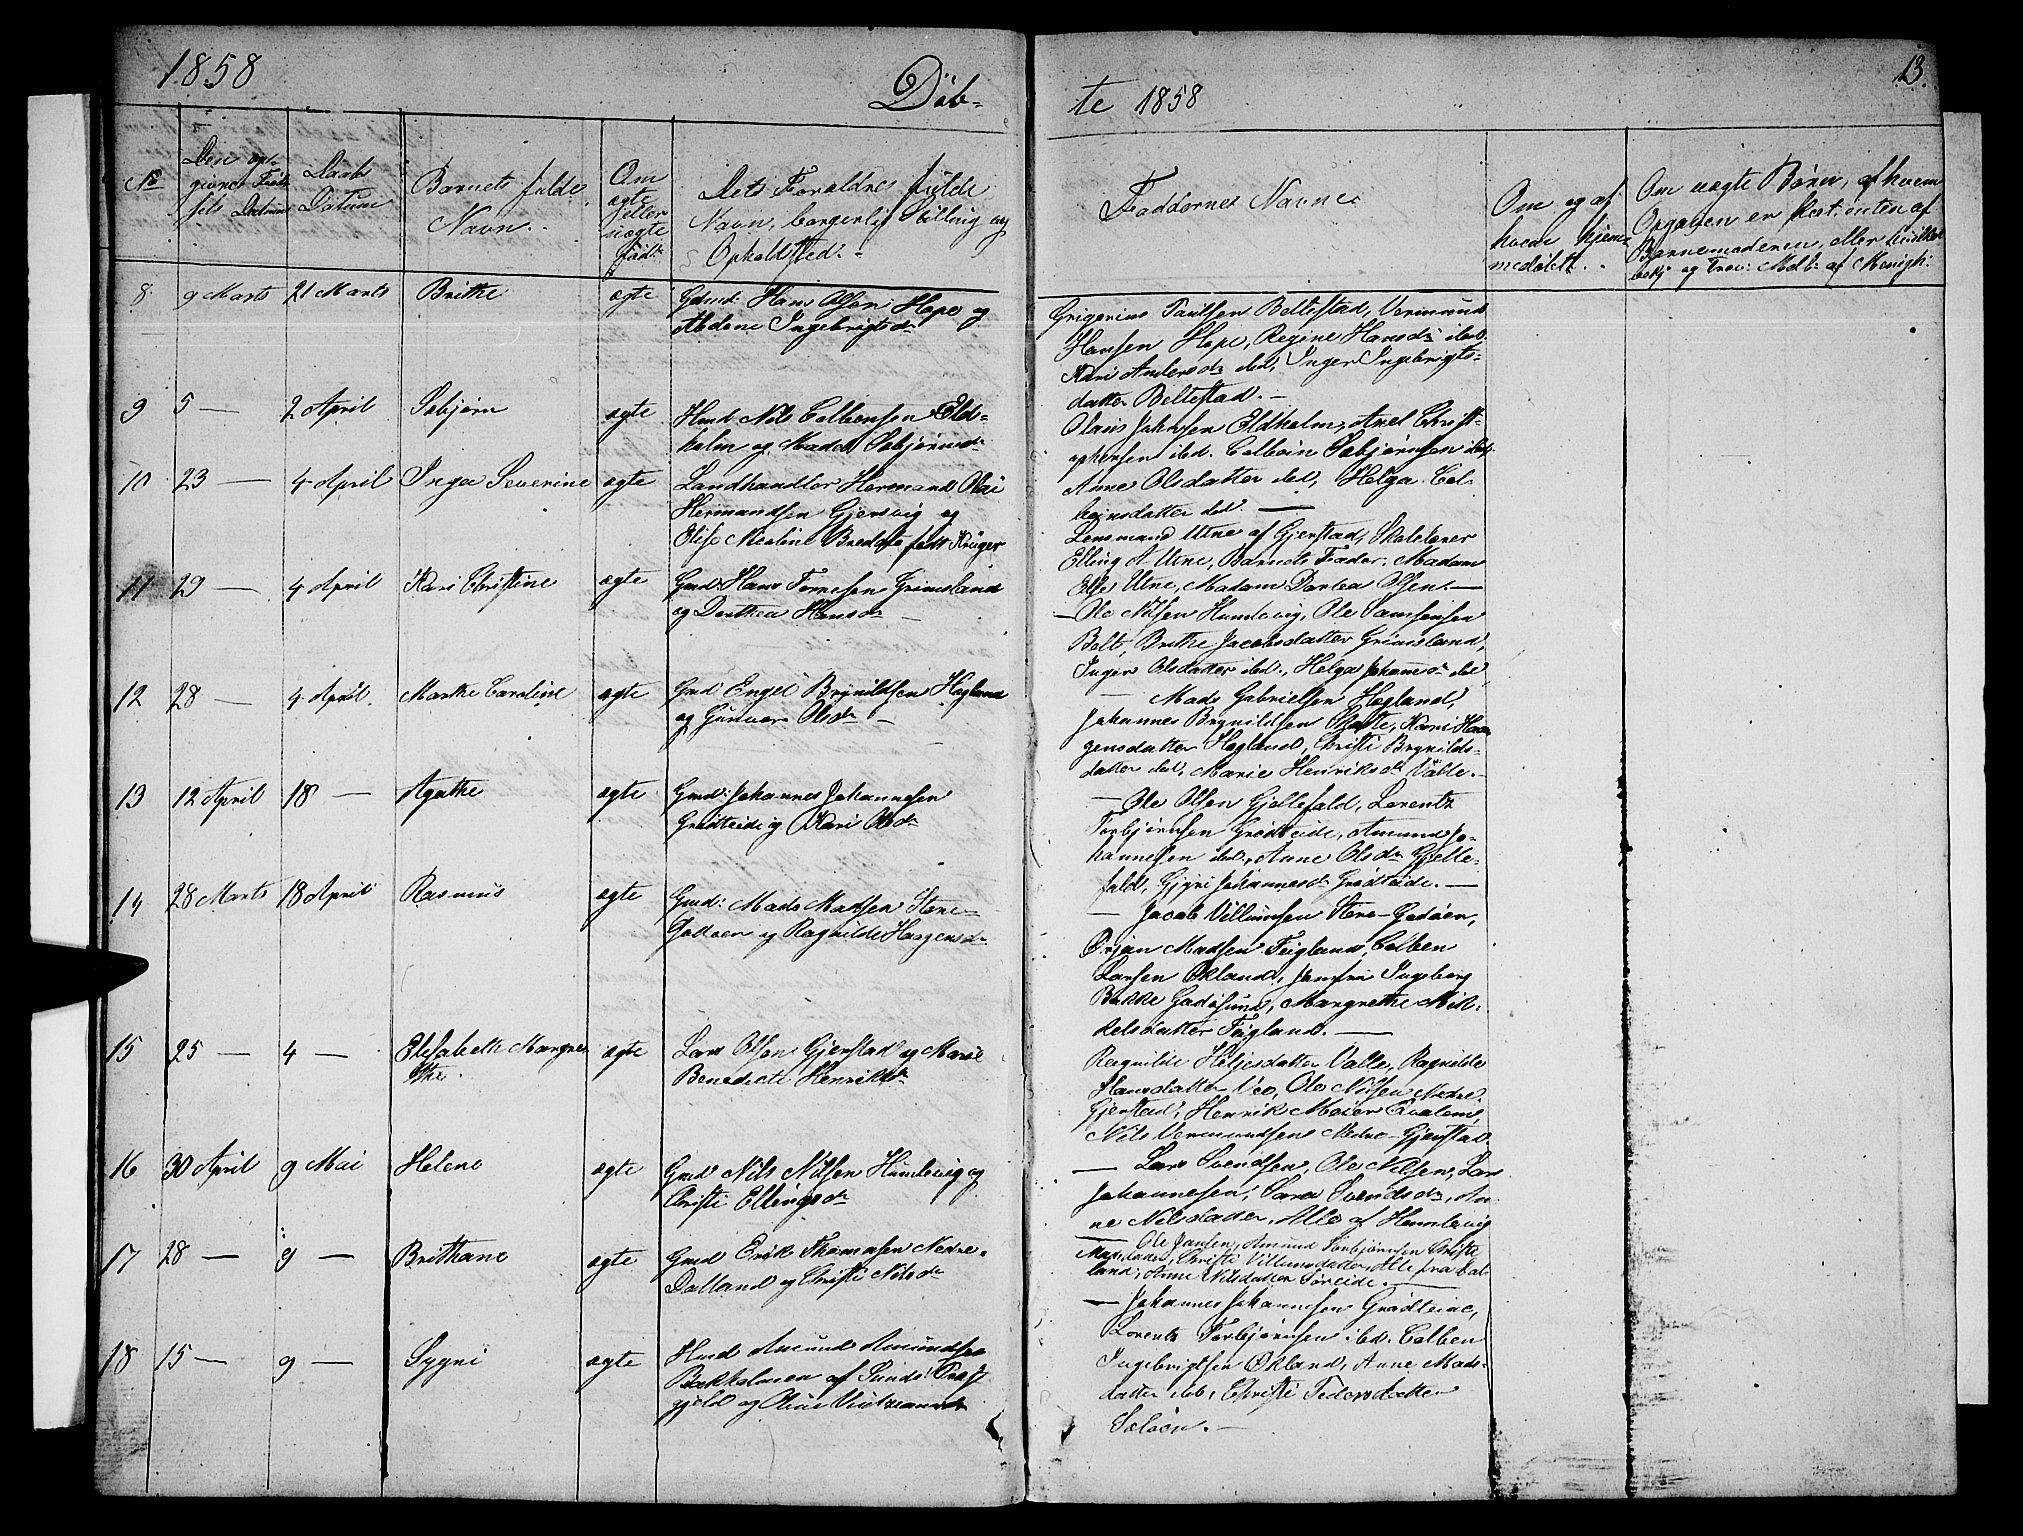 1858
Döb-
te 1858
13.
No
Den op-
givne Föd-
sels Datum
Daabs
Datum
Barnets fulde
Navn.
Om
ægte
eller
uægte
född
Dets Forældres fulde
Navn, borgerlig Stilling og
Opholdsted.
Faddernes Navne
Om og af
hvem hjem-
medöbt.
Om uægte Børn, af hvem
Opgaven er skeet, enten af
Barnemoderen, eller
og trov: Medl: af Menigh:
8
9 Marts
21 Marts
Brithe
ægte
Gdmd: Hans Olsen Hope og
Abdene Ingebrigtsdr
Grigorius Paulsen Beltestad, Vermund
Hansen Hope, Regine Hansdr ibid.
Kari Andersdr ibd, Inger Ingebrigts-
datter Beltestad. -
9
5 —
2 April
Sæbjörn
ægte
Hmd Nils Colbensen Eld-
holm og Madel Sæbjörnsdr
Olaus Johnsen Eldholm, Axel Christ-
ophersen ibd. Colbein Sæbjørnsen ibd.
Anne Olsdatter ibd, Helga Col-
beinsdatter ibd. —
10
23 —
4 April
Inga Severine
ægte
Landhandler Hermand Olai
Hermandsen Gjersvig og
Elise Nicoline Bredette födt Krüger
Lensmand Utne af Gjerstad, Skolelærer
Elling A. Utne, Barnets Fader. Madam
Else Utne, Madam Dortea Olsen. —
11
29 —
4 April
Kari Christine
ægte
Gmd: Hans Tornesen Grimsland
og Dorthea Hansdr —
— Ole Nilsen Humlevig, Ole Samsonsen
Belt, Brithe Jacobsdatter Grimsland,
Inger Olsdatter ibd., Helga Johannesdr ibd
12
28 —
4 April.
Marthe Caroline
ægte
Gmd Engel Brynildsen Hagland
og Gunvor Olsdr —
— Mads Gabrielsen Hagland,
Johannes Brynildsen Kari Haa-
gensdatter Hagland, Christi Brynilds-
datter ibd, Marie Henriksdr Valle. -
13
12 April
18 —
Agathe
ægte
Gmd: Johannes Johannesen
Grødteide og Kari Olsdr
— Ole Olsen Gjellefald, Lorentz
Torbjørnsen Grødteide, Amund Jo-
hannesen ibd., Anne Olsdr Gjelle-
fald, Gjyri Johannesdr Grødteide. —
14
28 Marts
18 April
Rasmus
ægte
Gmd: Mads Madsen Store-
Godöen og Ragnilde Haagensdr
— Jacob Villumsen Store-Godöen,
Ørjan Madsen Teigland, Colben
Larsen Økland, Jomfru Ingeborg
Bakke Godösund, Margrethe Mik-
kelsdatter Teigland. —
15
25 —
4 —
Elisabeth Margre-
the.
ægte
Lars Olsen Gjerstad og Marie
Benedicte Henriksdr
Ragnilde Heljesdatter Valle, Ragnilde
Hansdatter Vee, Ole Nilsen Nedre
Gjerstad, Henrik Meier
Nils Vermundsen Nedre-Gjerstad.
16
30 April
9 Mai
Helene
ægte
Gmd Nils Nilsen Humlevig og
Christi Ellingsdr
— Lars Svendsen, Ole Nilsen, Lars
Johannesen, Sara Svendsdr, An-
ne Nilsdatter, Alle af Humlevig
17
28 —
9 —
Brithane
ægte
Gmd Erik Thomasen Nedre-
Dalland og Christi Nilsdr
— Ole Jansen, Amund Torbjørnsen Christi
Madsdatter, Christi Villumsdatter, Alle fra Dal-
land, Anne Nilsdatter Søreide. —
18
15 —
9 —
Sygni
ægte
Hmd Amund Amundsen
Bakholmen af Sunds Præst-
gjeld og Oline
— Johannes Johannesen Grødteide,
Lorentz Torbjørnsen ibd. Colben
Ingebrigtsen Økland, Anne Mads-
datter ibd, Christi Pedersdatter
Seløen. —